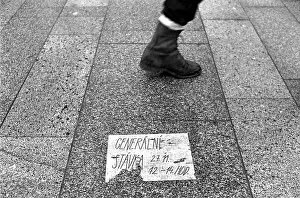 GENERÁLNÍ
STÁVKA 27.11.
12-14 HOD